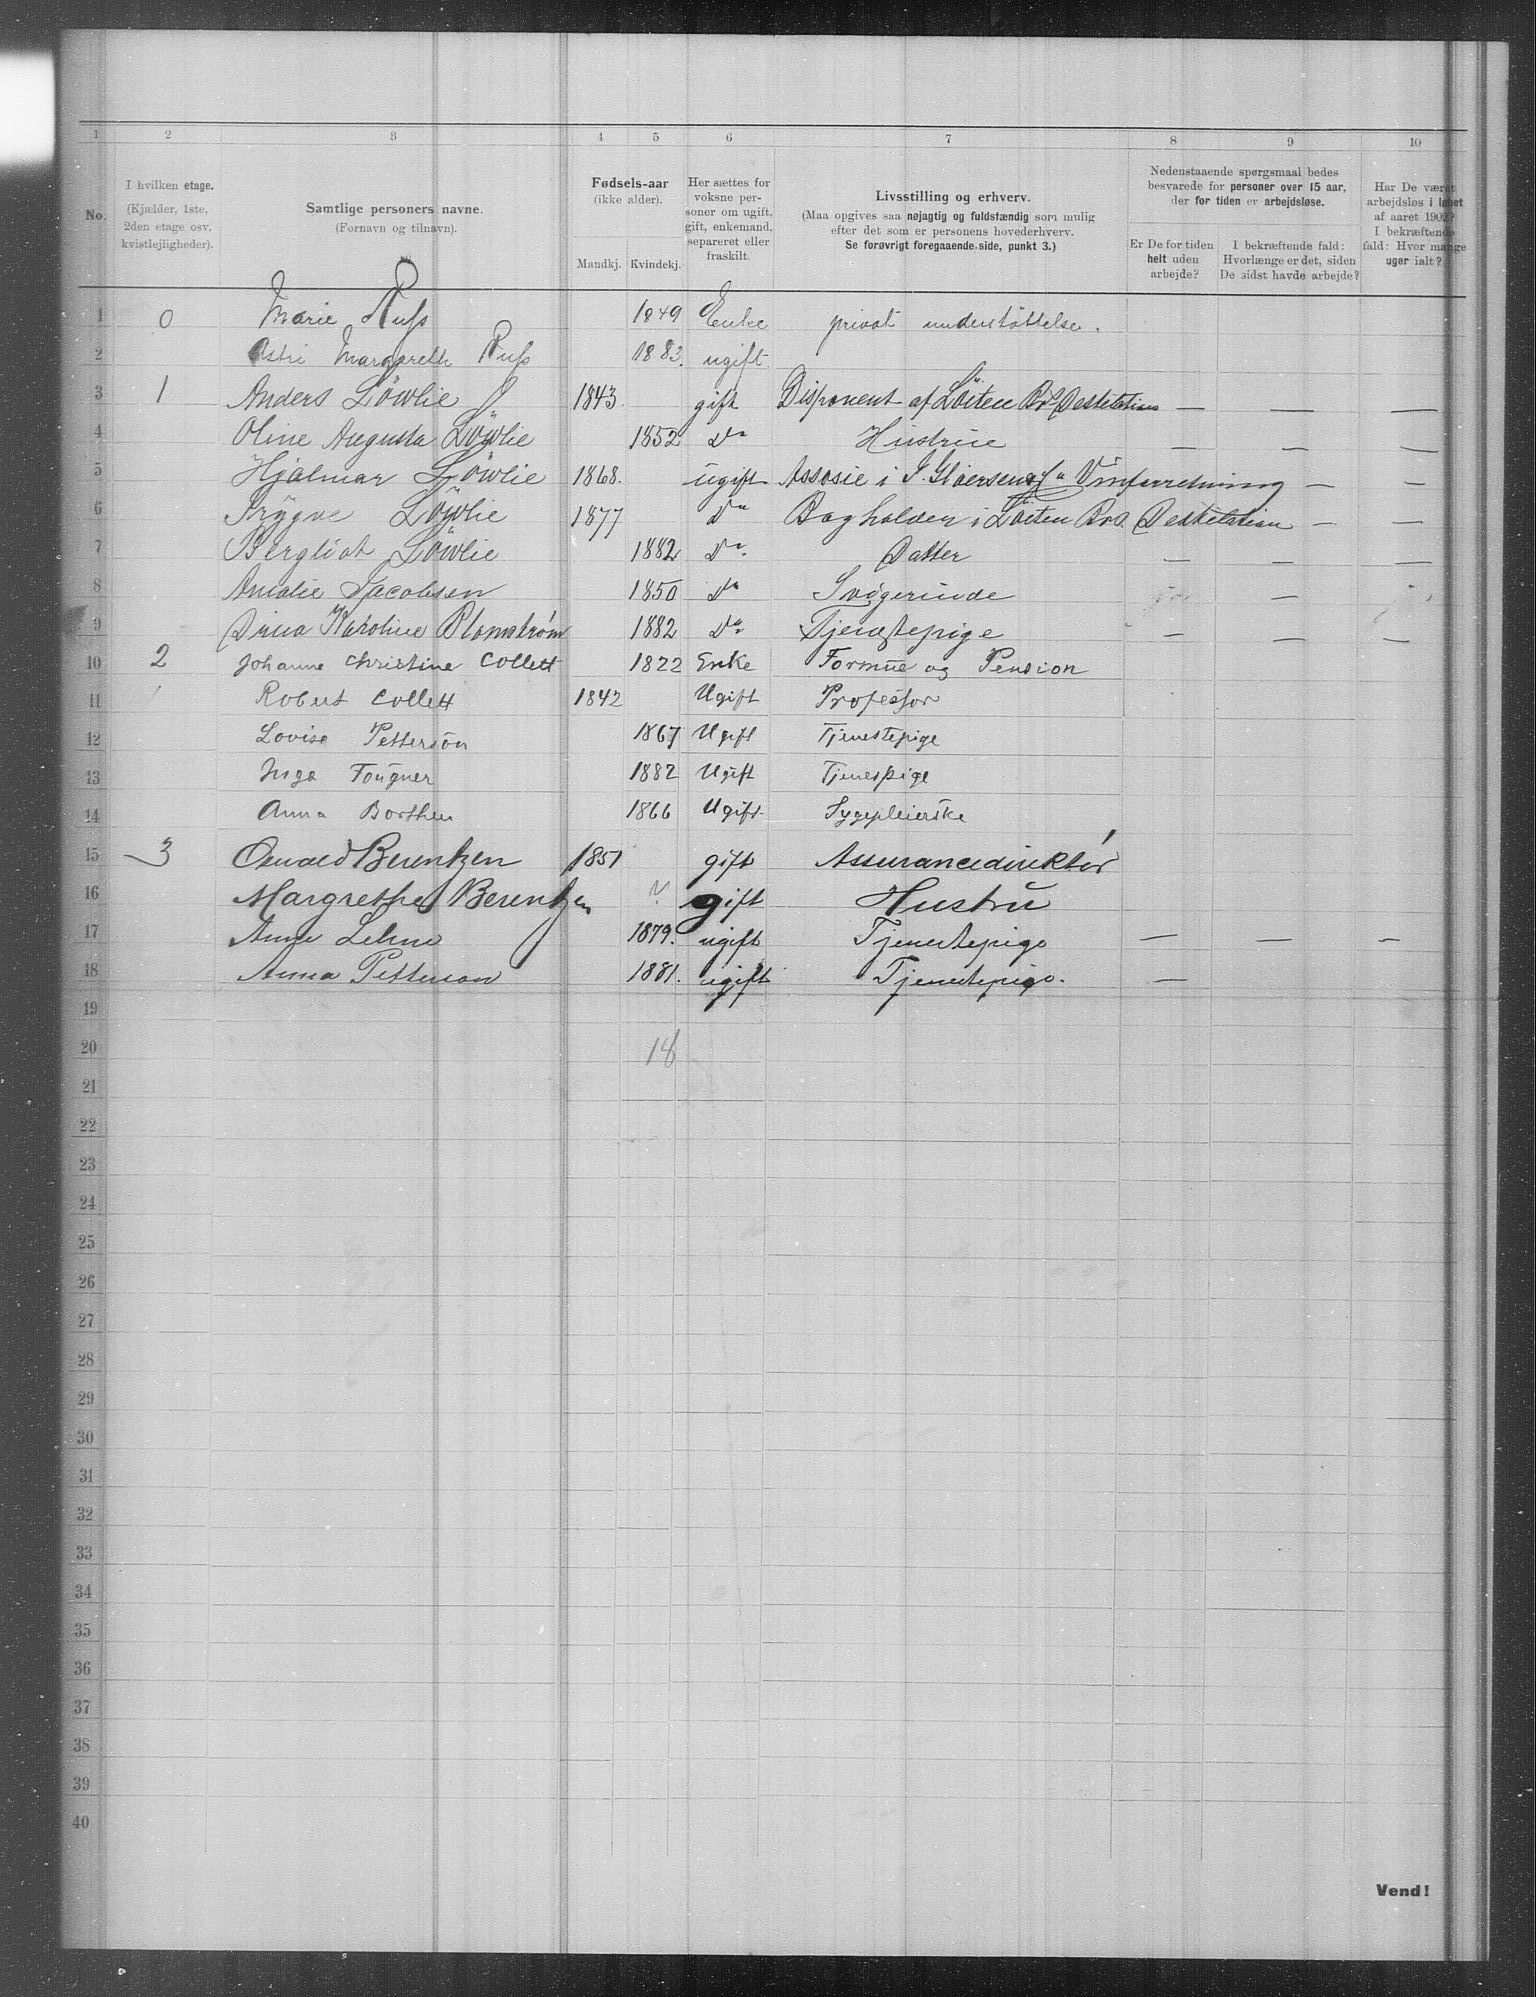 1 2 3 4 5 6 7 8 9 10
No.
I hvilken etage.
(Kjælder, 1ste,
2den etage osv.
kvistlejligheder).
Samtlige personers navne.
(Fornavn og tilnavn).
Fødsels-aar
(ikke alder).
Mandkj. Kvindekj.
Her sættes for
voksne per-
soner om ugift,
gift, enkemand,
separeret eller
fraskilt.
Livsstilling og erhverv.
(Maa opgives saa nøjagtig og fuldstændig som mulig
efter det som er personens hovederhverv.
Se forøvrigt foregaaende side, punkt 3.)
Nedenstaaende spørgsmaal bedes
besvarede for personer over 15 aar,
der for tiden er arbejdsløse.
Er De for tiden
helt uden
arbejde?
I bekræftende fald:
Hvorlænge er det, siden
De sidst havde arbejde?
Har De været
arbejdsløs i løbet
af aaret 1902?
I bekræftende
fald: Hvor mange
uger ialt?
1 0 Marie Russ 1849 Enke privat understöttelse.
2 Astri Margareth Russ 1883. ugift
3 1 Anders Löwlie 1843 gift Disponent af Löiten Br. Destilation — — —
4 Oline Augusta Löwlie 1852 Do Hustrue — — —
5 Hjalmar Löwlie 1868. ugift Assosie i J. Gloersens Vinforretning — —
6 Trÿgve Löwlie 1877 Do Bogholder i Löiten Brs. Destilation — —
7 Bergliot Löwlie 1882 Do Datter — — —
8 Amalie Jacobsen 1850 Do Svigerinde —
9 Dina Karoline Blomstrøm 1882 Do Tjenestepige — — —
10 2 Johanne Christine Collett 1822 Enke Formue og Pension
11 Robert Collett 1842 Ugift Professor
12 Lovise Petterson 1867 Ugift Tjenestepige
13 Inga Fougner 1882 Ugift Tjenespige
14 Anna Borthen 1866 Ugift. Sygepleierske
15 3 Oswald Berentzen 1851 gift Assurancedirektör
16 Margrethe Berentzen ? gift Hustru
17 Anna Lehne 1879. ugift Tjenestepige — — —
18 Anna Petterson 1881. ugift Tjenestepige. —
19
20 18
21
22
23
24
25
26
27
28
29
30
31
32
33
34
35
36
37
38
39
40
Vend!